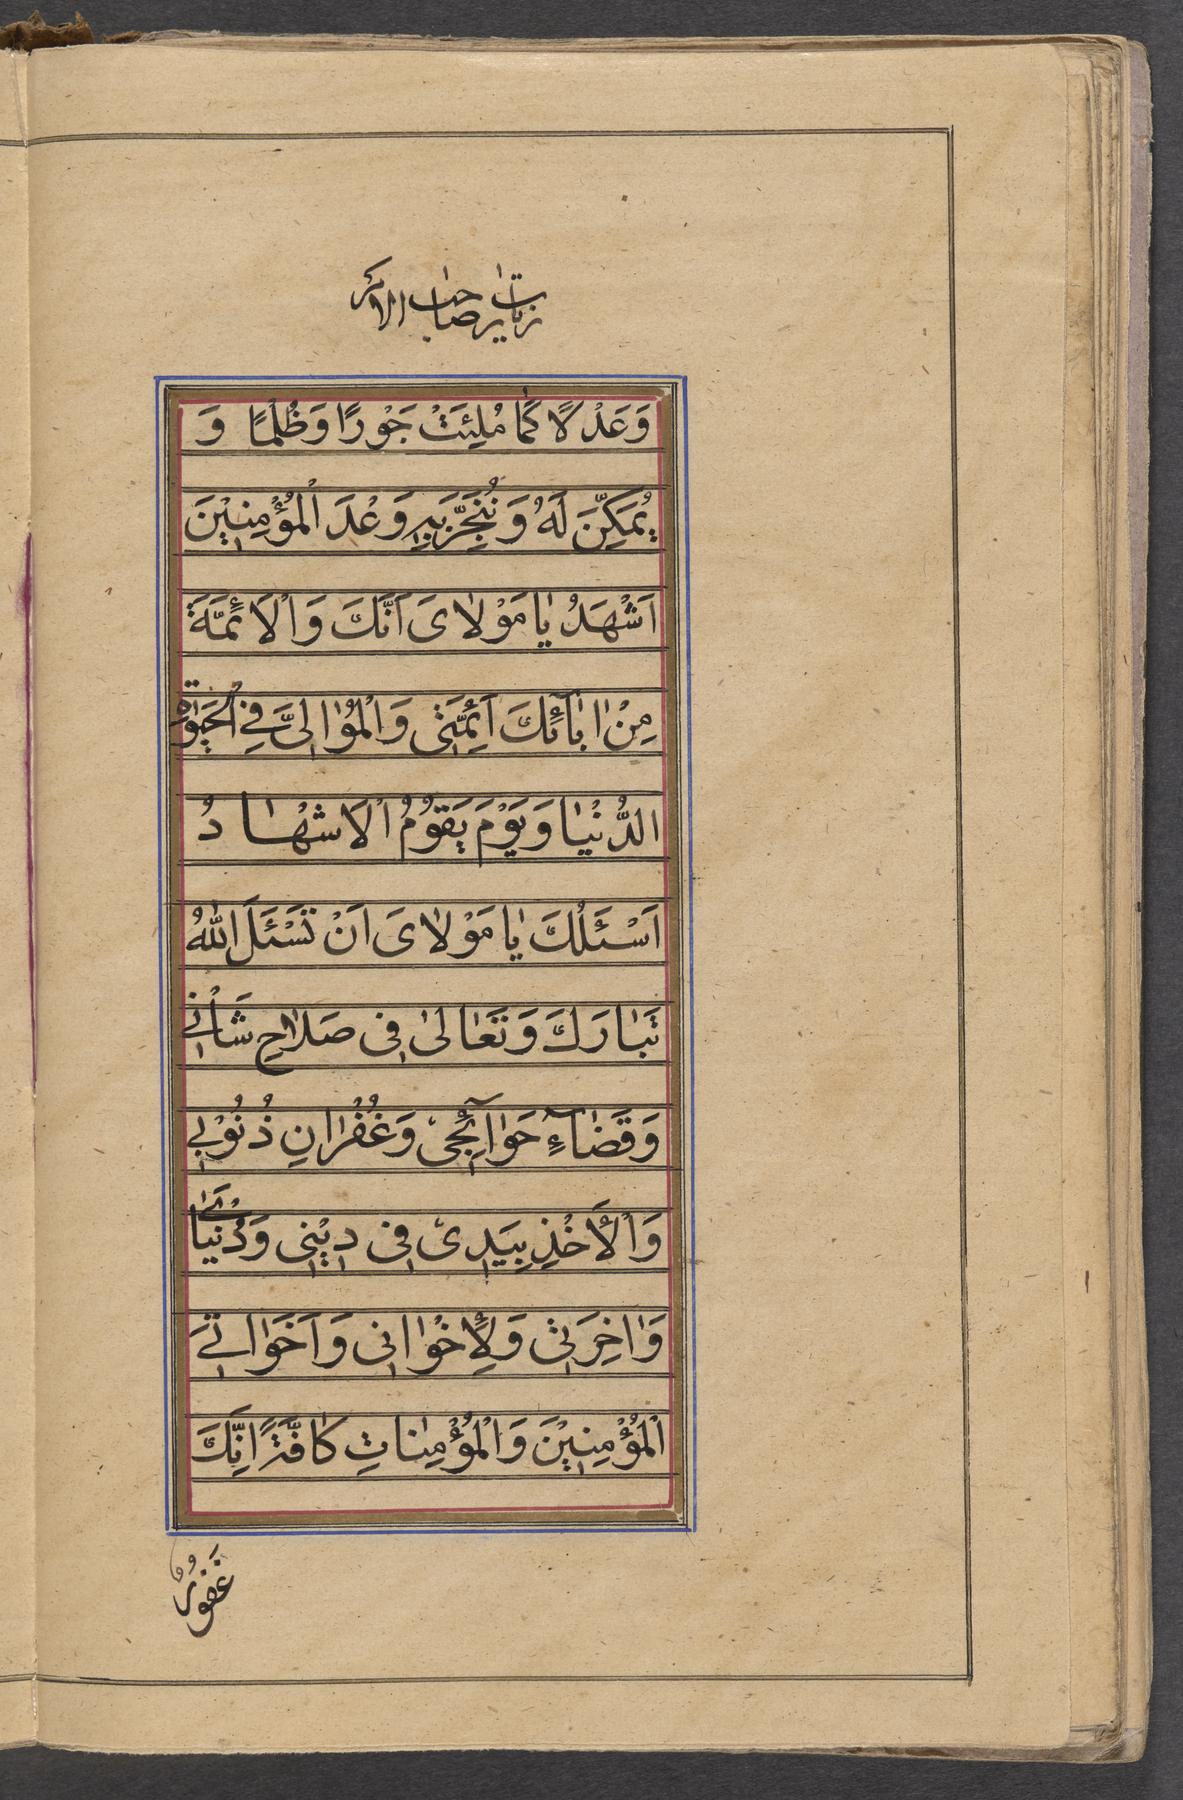 زیارت صاحب الامر
وَعَدْلًا كَمٰا مُلِئَتْ جَوْرًا وَظُلْمًا وَ
يُمَكِّنَ لَهُ وَ يُنَجِّزَ بِهِ وَعْدَ الْمُؤْمِنِيْنَ
اَشْهَدُ يٰا مَوْلٰاىَ اَنَّكَ وَالْاَئِمَّةَ
مِنْ اٰبٰآئِكَ اَئِمَّتِى وَالْمُوٰالِىَّ فِى الْحَيٰوةِ
الدُّنْيٰا وَيَوْمَ يَقُوْمُ الْاَشْهٰادُ
اَسْئَلُكَ يٰا مَوْلٰاىَ اَنْ تَسْئَلَ اللّٰهُ
تَبٰارَكَ وَتَعٰالىٰ فِى صَلاٰحِ شَاْنِى
وَقَضٰآءِ حَوٰآئِجِى وَغُفْرٰانِ ذُنُوْبِى
وَالْاَخْذِ بِيَدِى فِى دِيْنِى وَدُنْيٰاىَ
وَاٰخِرَتِى وَلِاِخْوٰانِى وَاَخَوٰاتِى
الْمُؤْمِنِيْنَ وَالْمُؤْمِنٰاتِ كٰافَّةً اِنَّكَ
غَفُوْرٌ